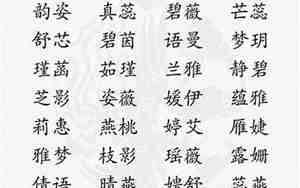 韵姿 真蕊 碧薇 芒蕊
舒芯 碧茵 语曼 梦玥
瑾菡 茹瑾 兰雅 静碧
芝影 姿薇 媛伊 蕴雅
莉惠 燕桃 婷艾 雁婕
雅梦 枝影 瑶薇 露姗
倩语 晴燕 娉舒 蕊燕